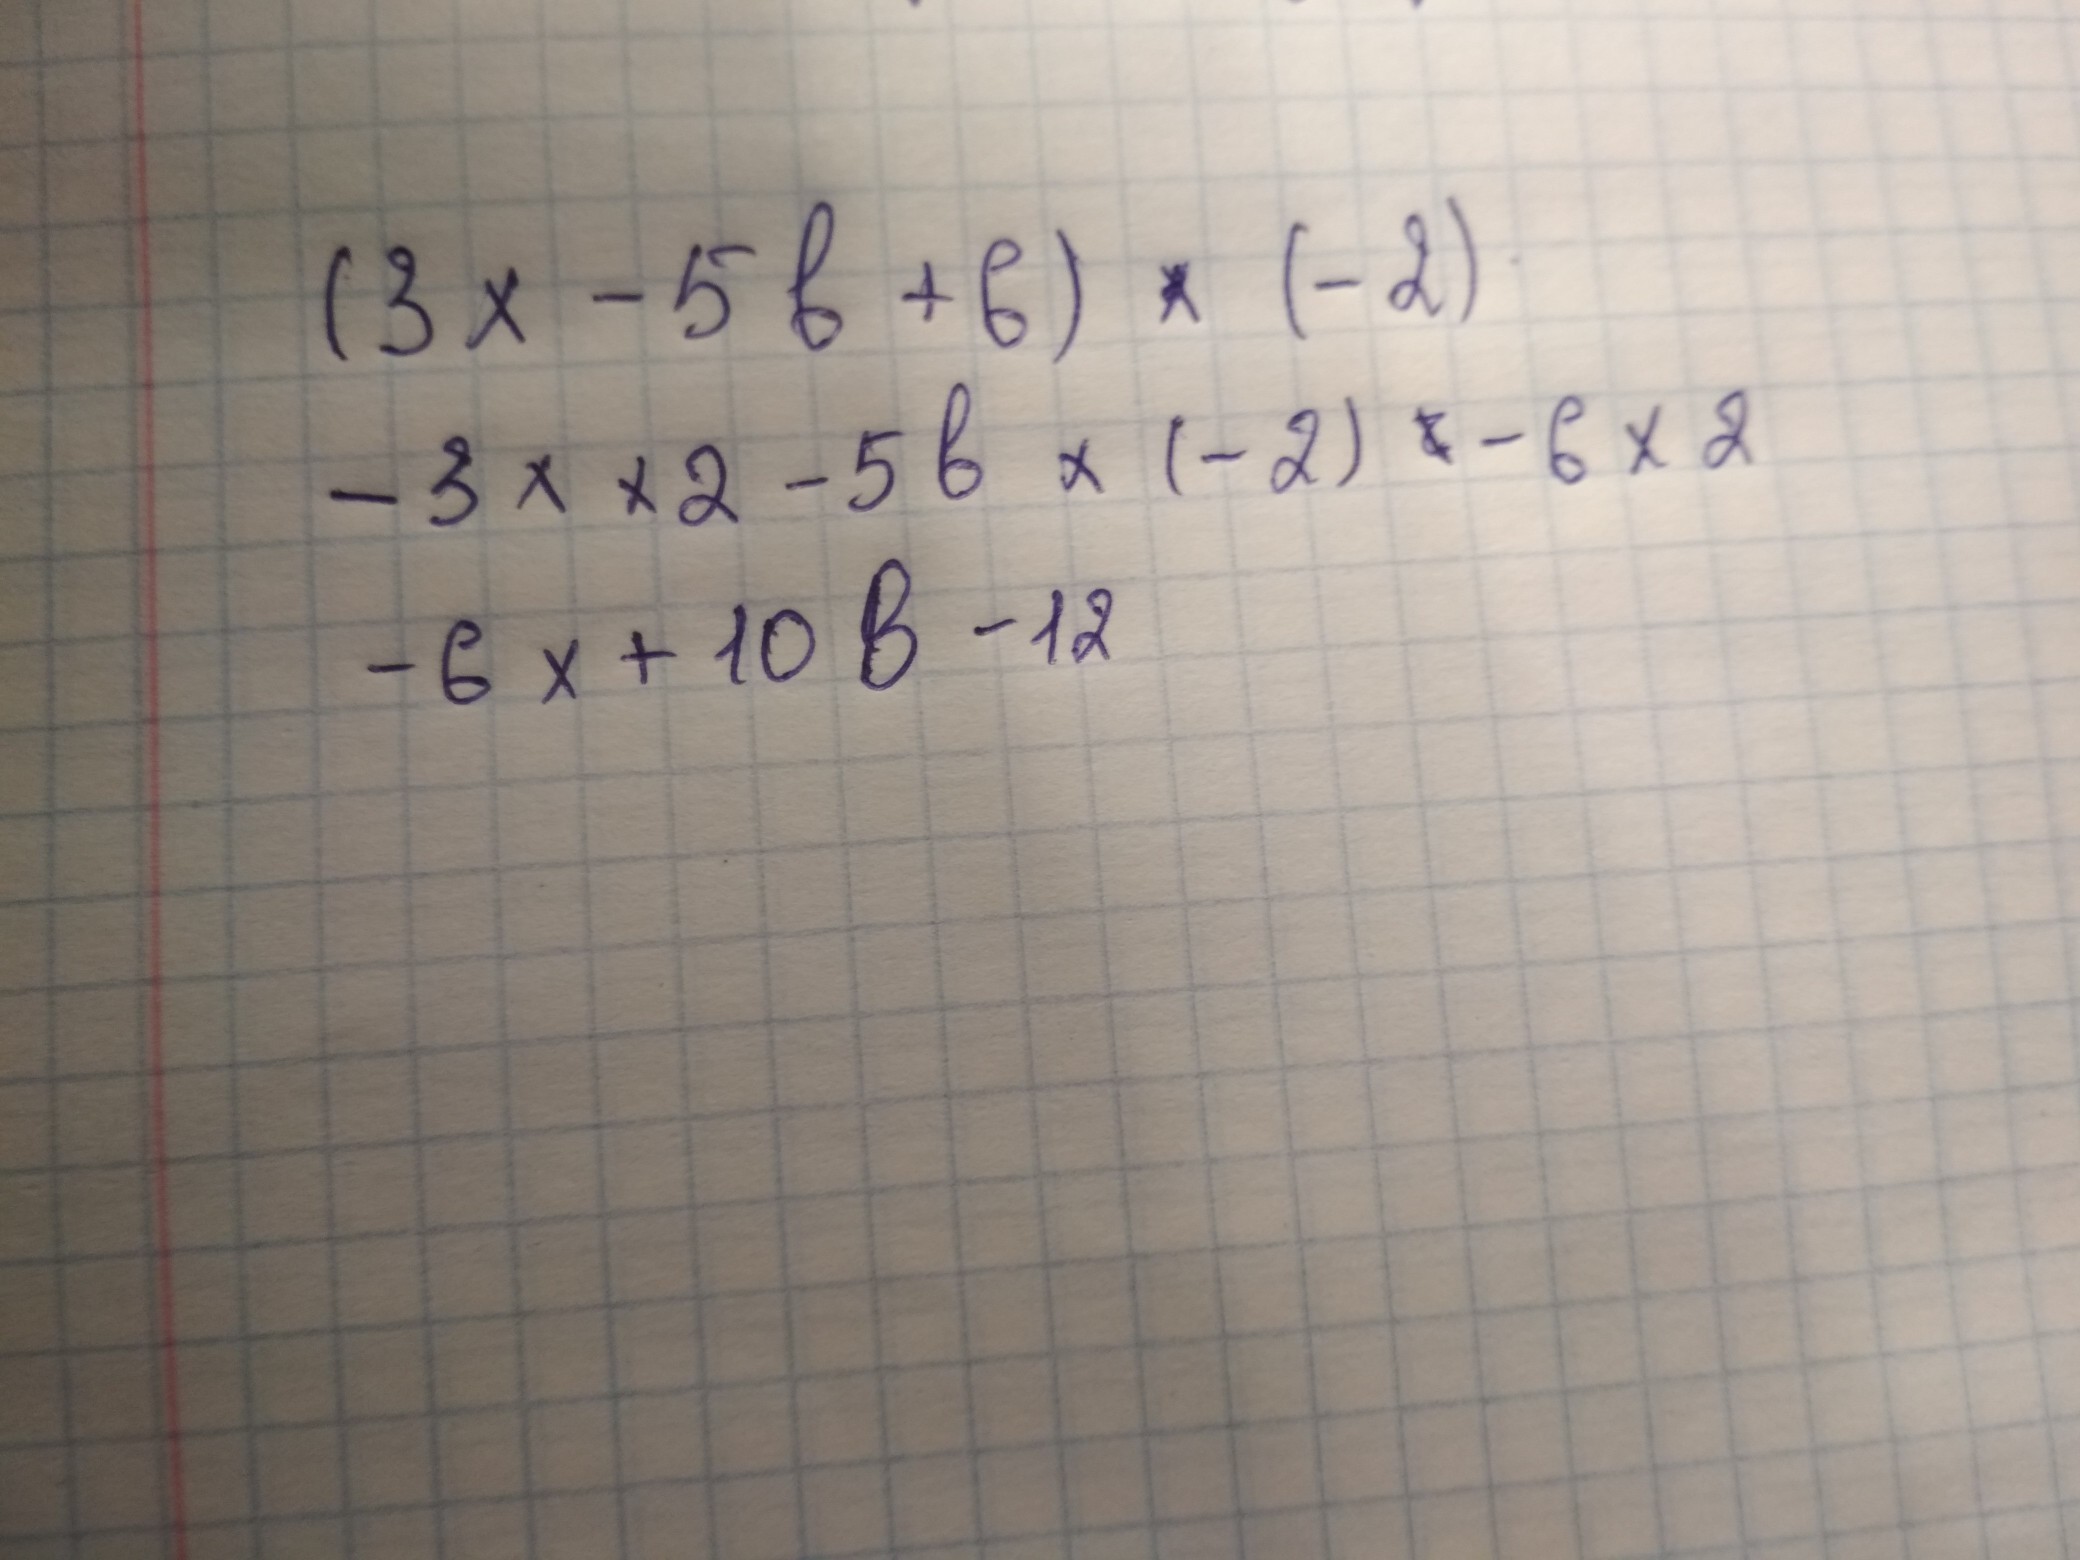 (3x - 5b + 6) × (-2)
-3x × 2 - 5b × (-2) - 6 × 2
-6x + 10b - 12